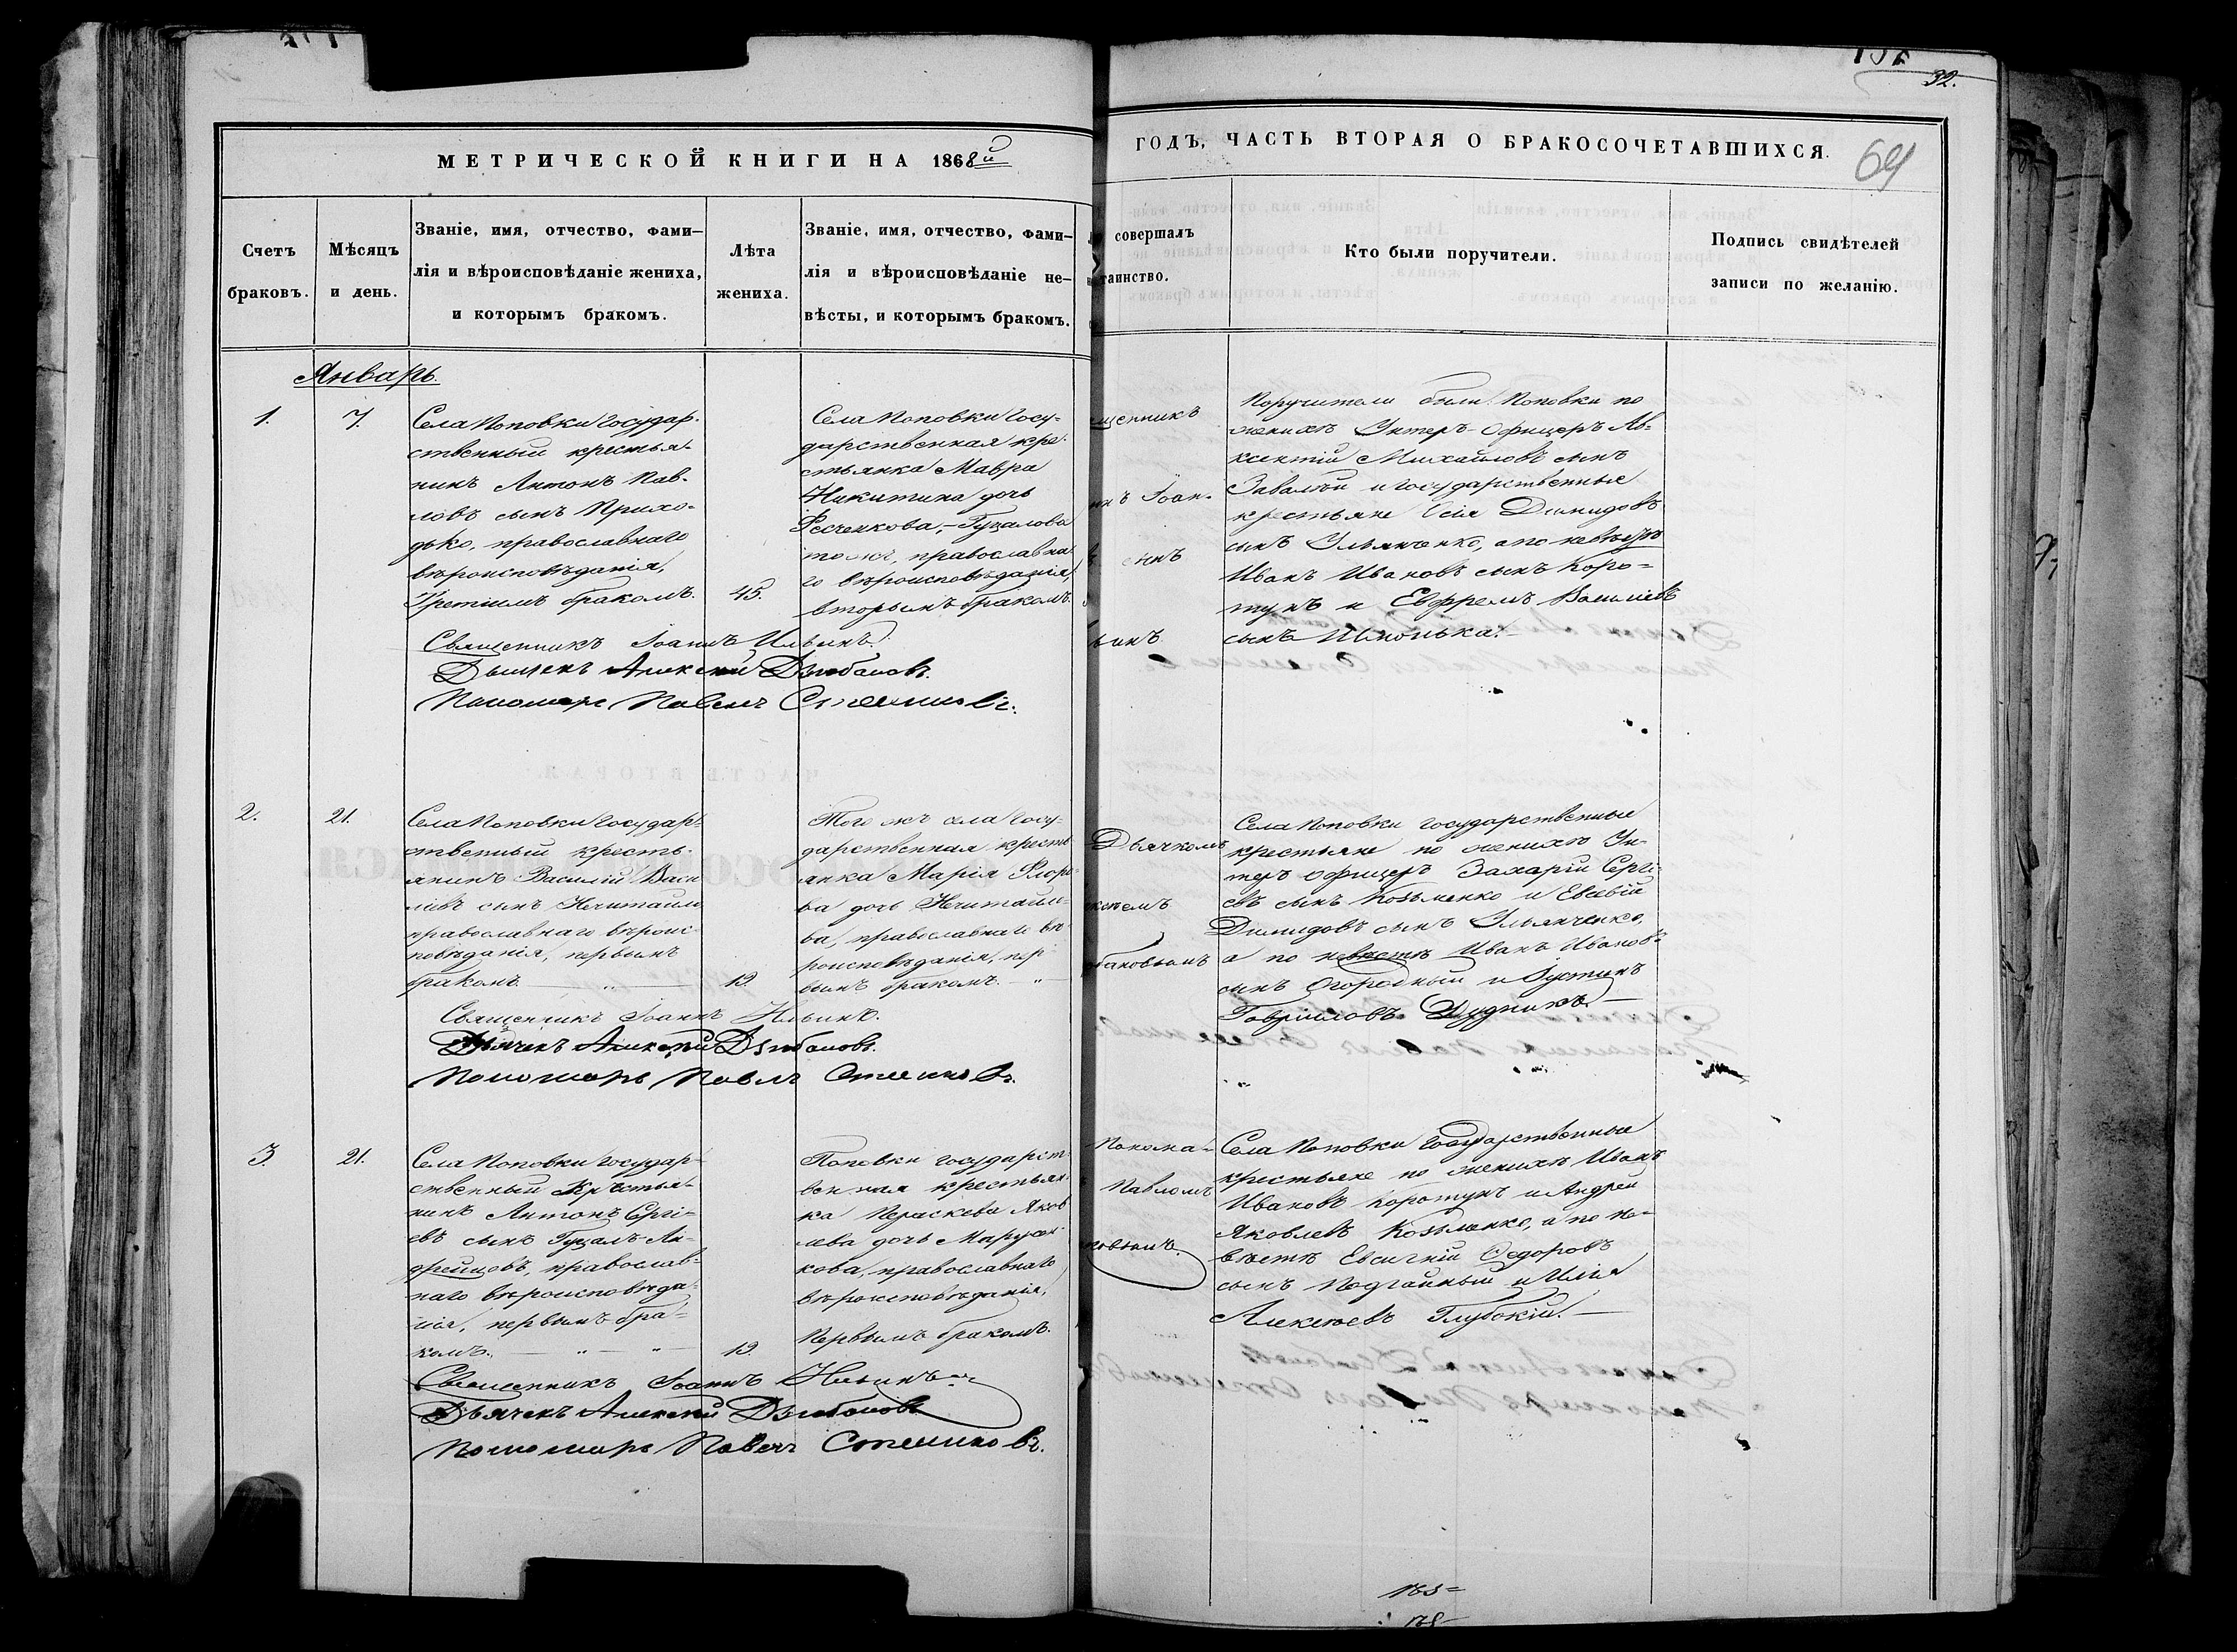 32.
64
МЕТРИЧЕСКОЙ КНИГИ НА 1868й
ГОДЪ, ЧАСТЬ ВТОРАЯ О БРАКОСОЧЕТАВШИХСЯ.
Счетъ
браковъ.
Мѣсяцъ
и день.
Званіе, имя, отчество, фами-
лія и вѣроисповѣданіе жениха,
и которымъ бракомъ.
Лѣта
жениха.
Званіе, имя, отчество, фами-
лія и вѣроисповѣданіе не-
вѣсты, и которымъ бракомъ.
совершалъ
таинство.
Кто были поручители.
Подпись свидѣтелей
записи по желанію.
Январь.
1.
7.
Села Поповки Государ-
ственный крестья-
нинъ Антонъ Пав-
ловъ сынъ Прихо-
дько, православнаго
вѣроисповѣданія,
Третіимъ бракомъ.
45.
Села Поповки Госу-
дарственная кре-
стьянка Мавра
Никитина дочь
Фесченкова, Гуцалова
тожъ, православна-
го вѣроисповѣданія,
вторымъ бракомъ.
щенникъ
нъ Іоан-
сынъ
ьинъ
Поручители были: Поповки по
женихѣ Унтеръ-Офицеръ Ав-
ксентій Михайловъ сынъ
Завалѣй и государственные
крестьяне Демидовъ
сынъ Ульянченко, а по невѣстѣ
Иванъ Ивановъ сынъ Коро-
тунъ и Евфремъ Василіевъ
сынъ
Священникъ Іоаннъ Ильинъ.
Дьячекъ Алексѣй Дзюбановъ.
Пономарь Павелъ
2.
21.
Села Поповки Государ-
ственный кресть-
янинъ Василій Васи
ліевъ сынъ Нечитайло
православнаго вѣроис-
повѣданія, первымъ
бракомъ.
19.
Того жъ села Госу-
дарственная кресть
янка Марія Флоро-
ва дочь Нечитайло-
ва, православнаго вѣ
роисповѣданія, пер
вымъ бракомъ.
Дьячкомъ
ксѣемъ
бановымъ
Села Поповки государственные
крестьяне по женихѣ Ун-
теръ офицеръ Захарій Сергі-
евъ сынъ Козьменко и Евсевій
Демидовъ сынъ Ульянченко,
а по невѣстѣ Иванъ Ивановъ
сынъ Огородный и Іустинъ
Гавріиловъ Дудникъ.
Священникъ Іоаннъ Ильинъ.
Дьячекъ Алексѣй Дзюбановъ.
Пономарь Павелъ
3.
21.
Села Поповки Государ-
ственный Крестья-
нинъ Антонъ Сергі-
евъ сынъ Гуцалъ Ан-
дрейцовъ, православ-
наго вѣроисповѣда-
нія, первымъ бра-
комъ.
19.
Поповки государст-
венная крестьян-
ка Параскева Яков
лева дочь
кова, православнаго
вѣроисповѣданія,
Первымъ бракомъ.
Понома-
Павломъ
новымъ.
Села Поповки Государственные
крестьяне по женихѣ Иванъ
Ивановъ Коротунъ и Андрей
Яковлевъ Козьменко, а по не-
вѣстѣ Евсигній Ѳедоровъ
сынъ Подгайный и Илія
Алексѣевъ Глубокій.
Священникъ Іоаннъ Ильинъ
Дьячекъ Алексѣй Дзюбановъ
Пономарь Павелъ